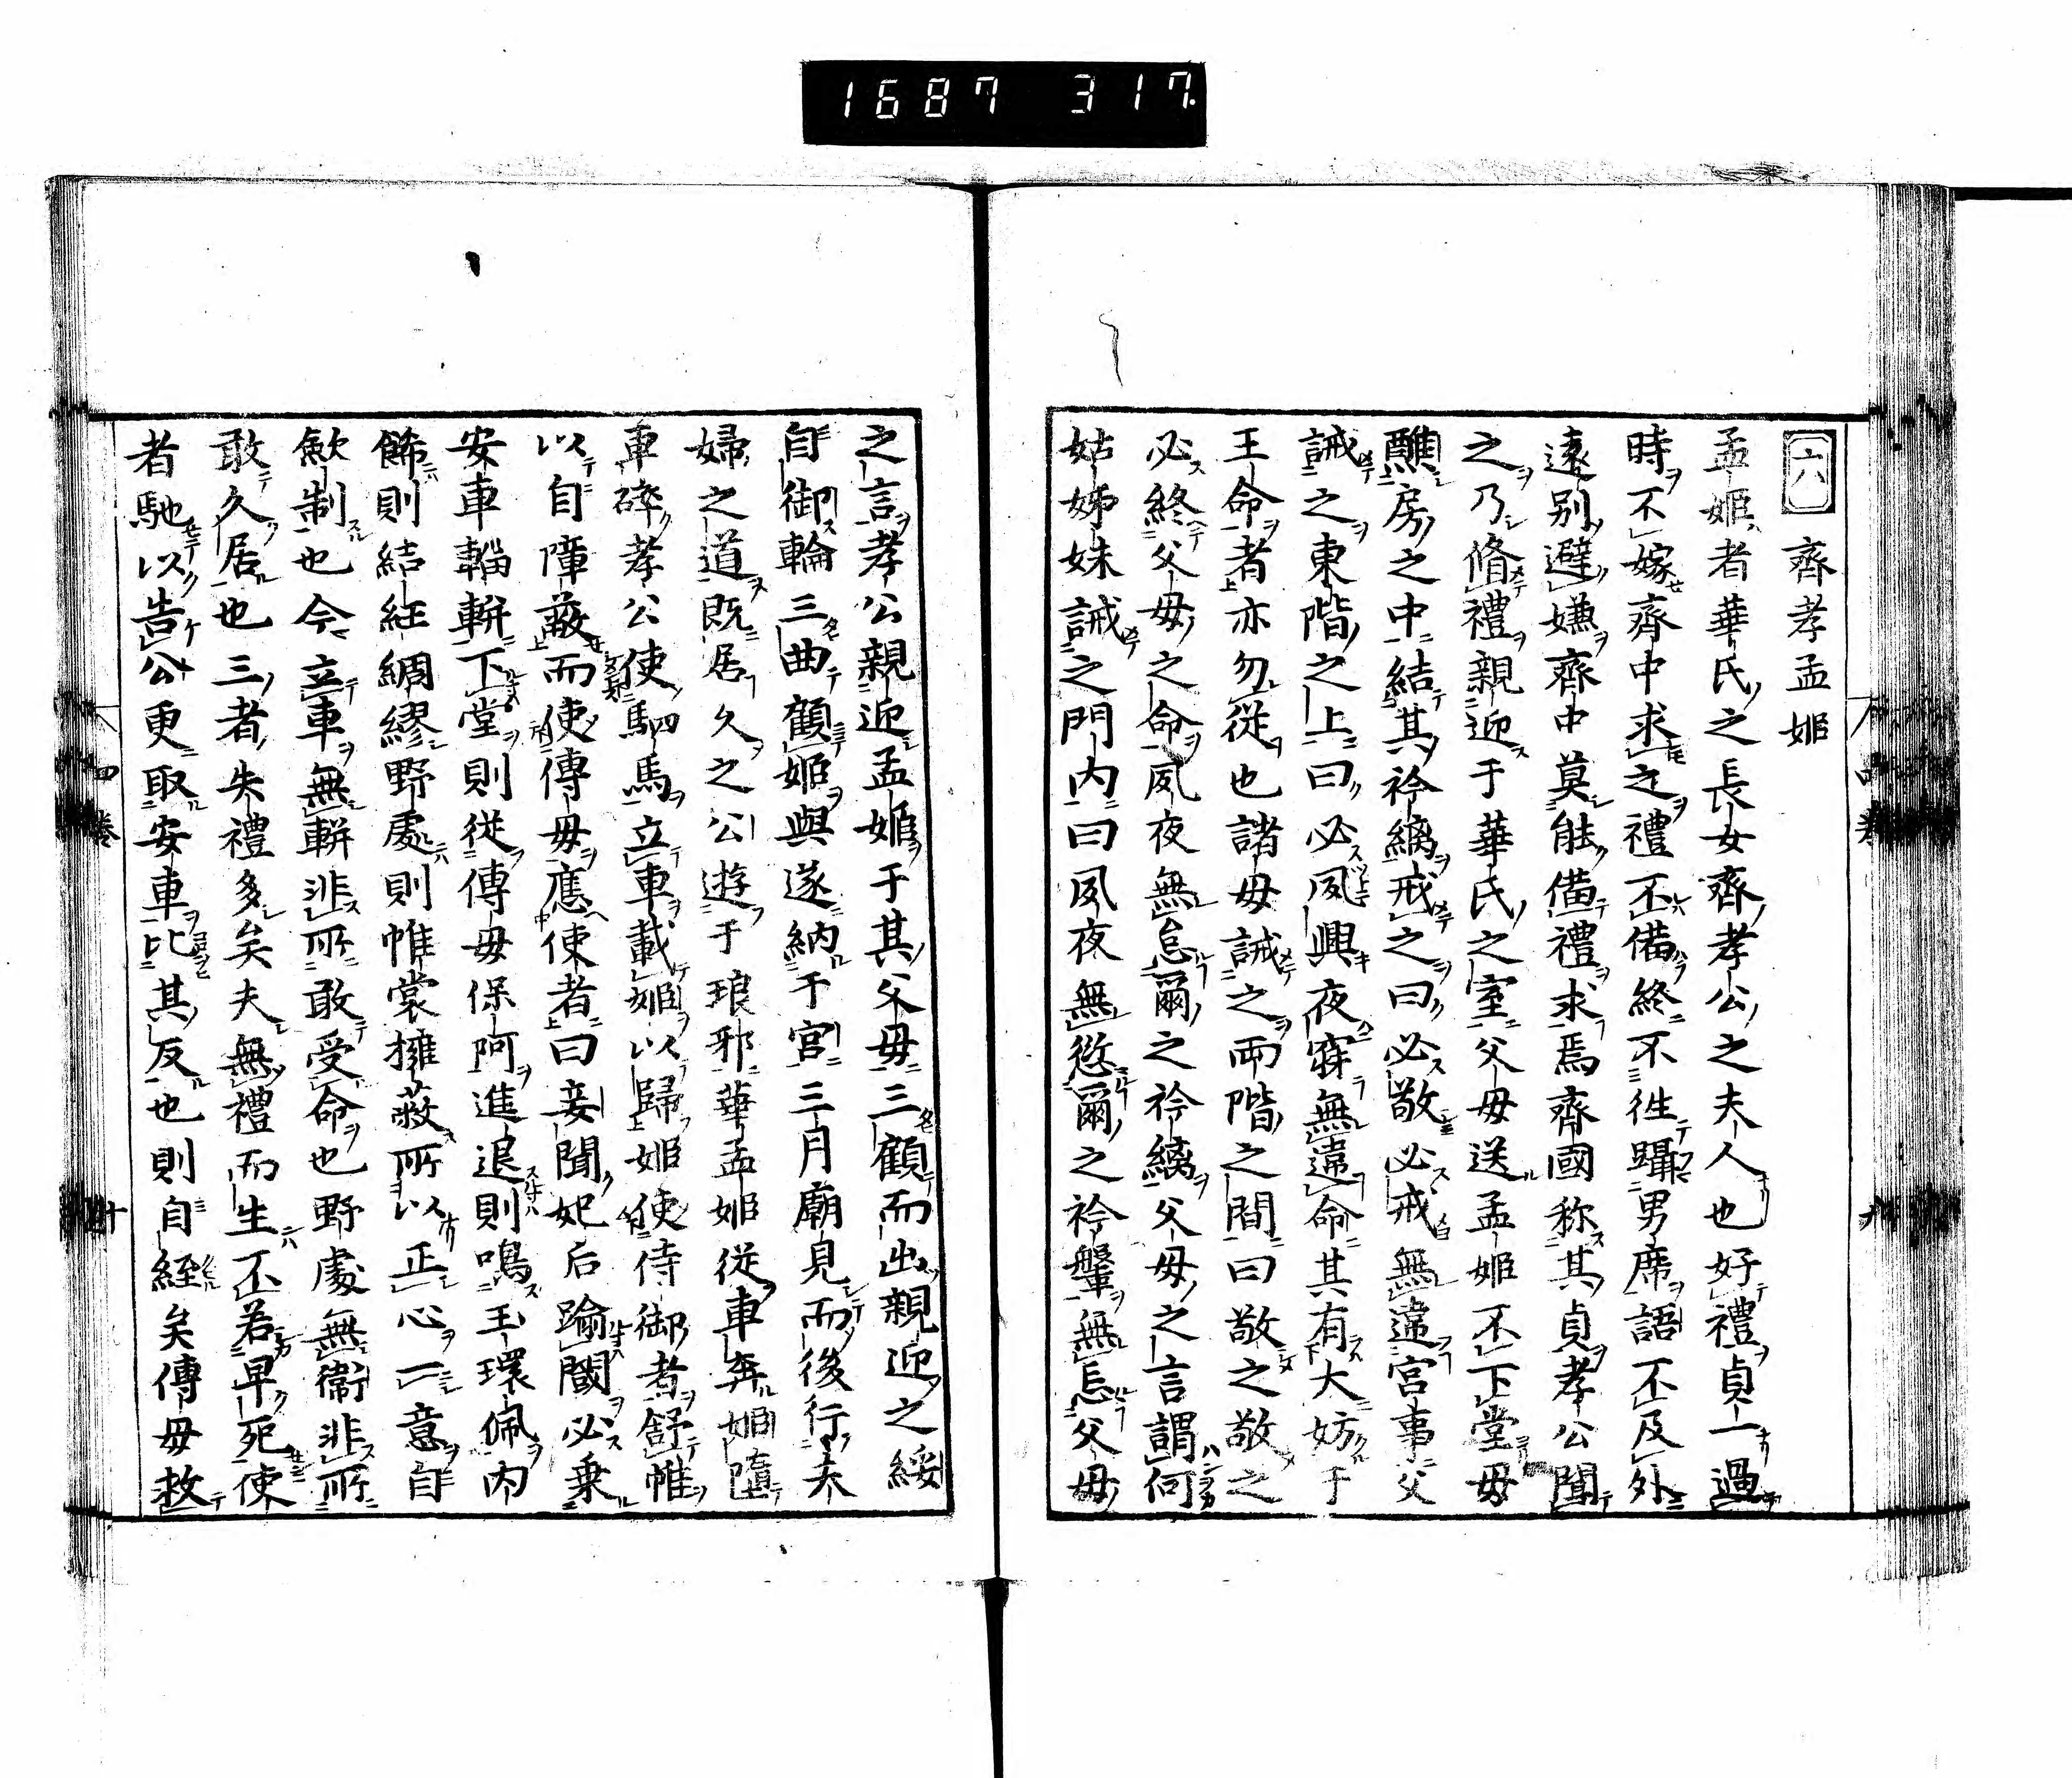 1687 317.
六 齊孝孟姬
孟姬者華氏之長女齊孝公之夫人也好禮貞一過
時不嫁齊中求之禮不備終不往躡男席語不及外
遠別避嫌齊中莫能備禮求焉齊國称其貞孝公聞
之乃脩禮親迎于華氏之室父母送孟姬不下堂母
醮房之中結其衿縭戒之曰必敬必戒無違宮事父
誡之東階之上曰必夙興夜寐無違命其有大妨于
王命者亦勿從也諸母誡之兩階之間曰敬之敬之
必終父母之命夙夜無怠爾之衿縭父母之言謂何
姑姊妹誡之門内曰夙夜無愆爾之衿鞶無忘父母
之言孝公親迎孟姬于其父母三顧而出親迎之綏
自御輪三曲顧姬與遂納于宮三月廟見而後行夫
婦之道既居久之公遊于琅邪華孟姬從車奔姬墮
車碎孝公使駟馬立車載姬以歸姬使侍御者舒帷
以自障蔽而使傳母應使者曰妾聞妃后踰閾必乗
安車輜軿下堂則從傳母保阿進退則鳴玉環佩内
餙則結紐綢繆野處則帷裳擁蔽所以正心一意自
歛制也今立車無軿非所敢受命也野處無衞非所
敢久居也三者失禮多矣夫無禮而生不若早死使
者馳以告公更取安車比其反也則自經矣傳母救
四卷
十